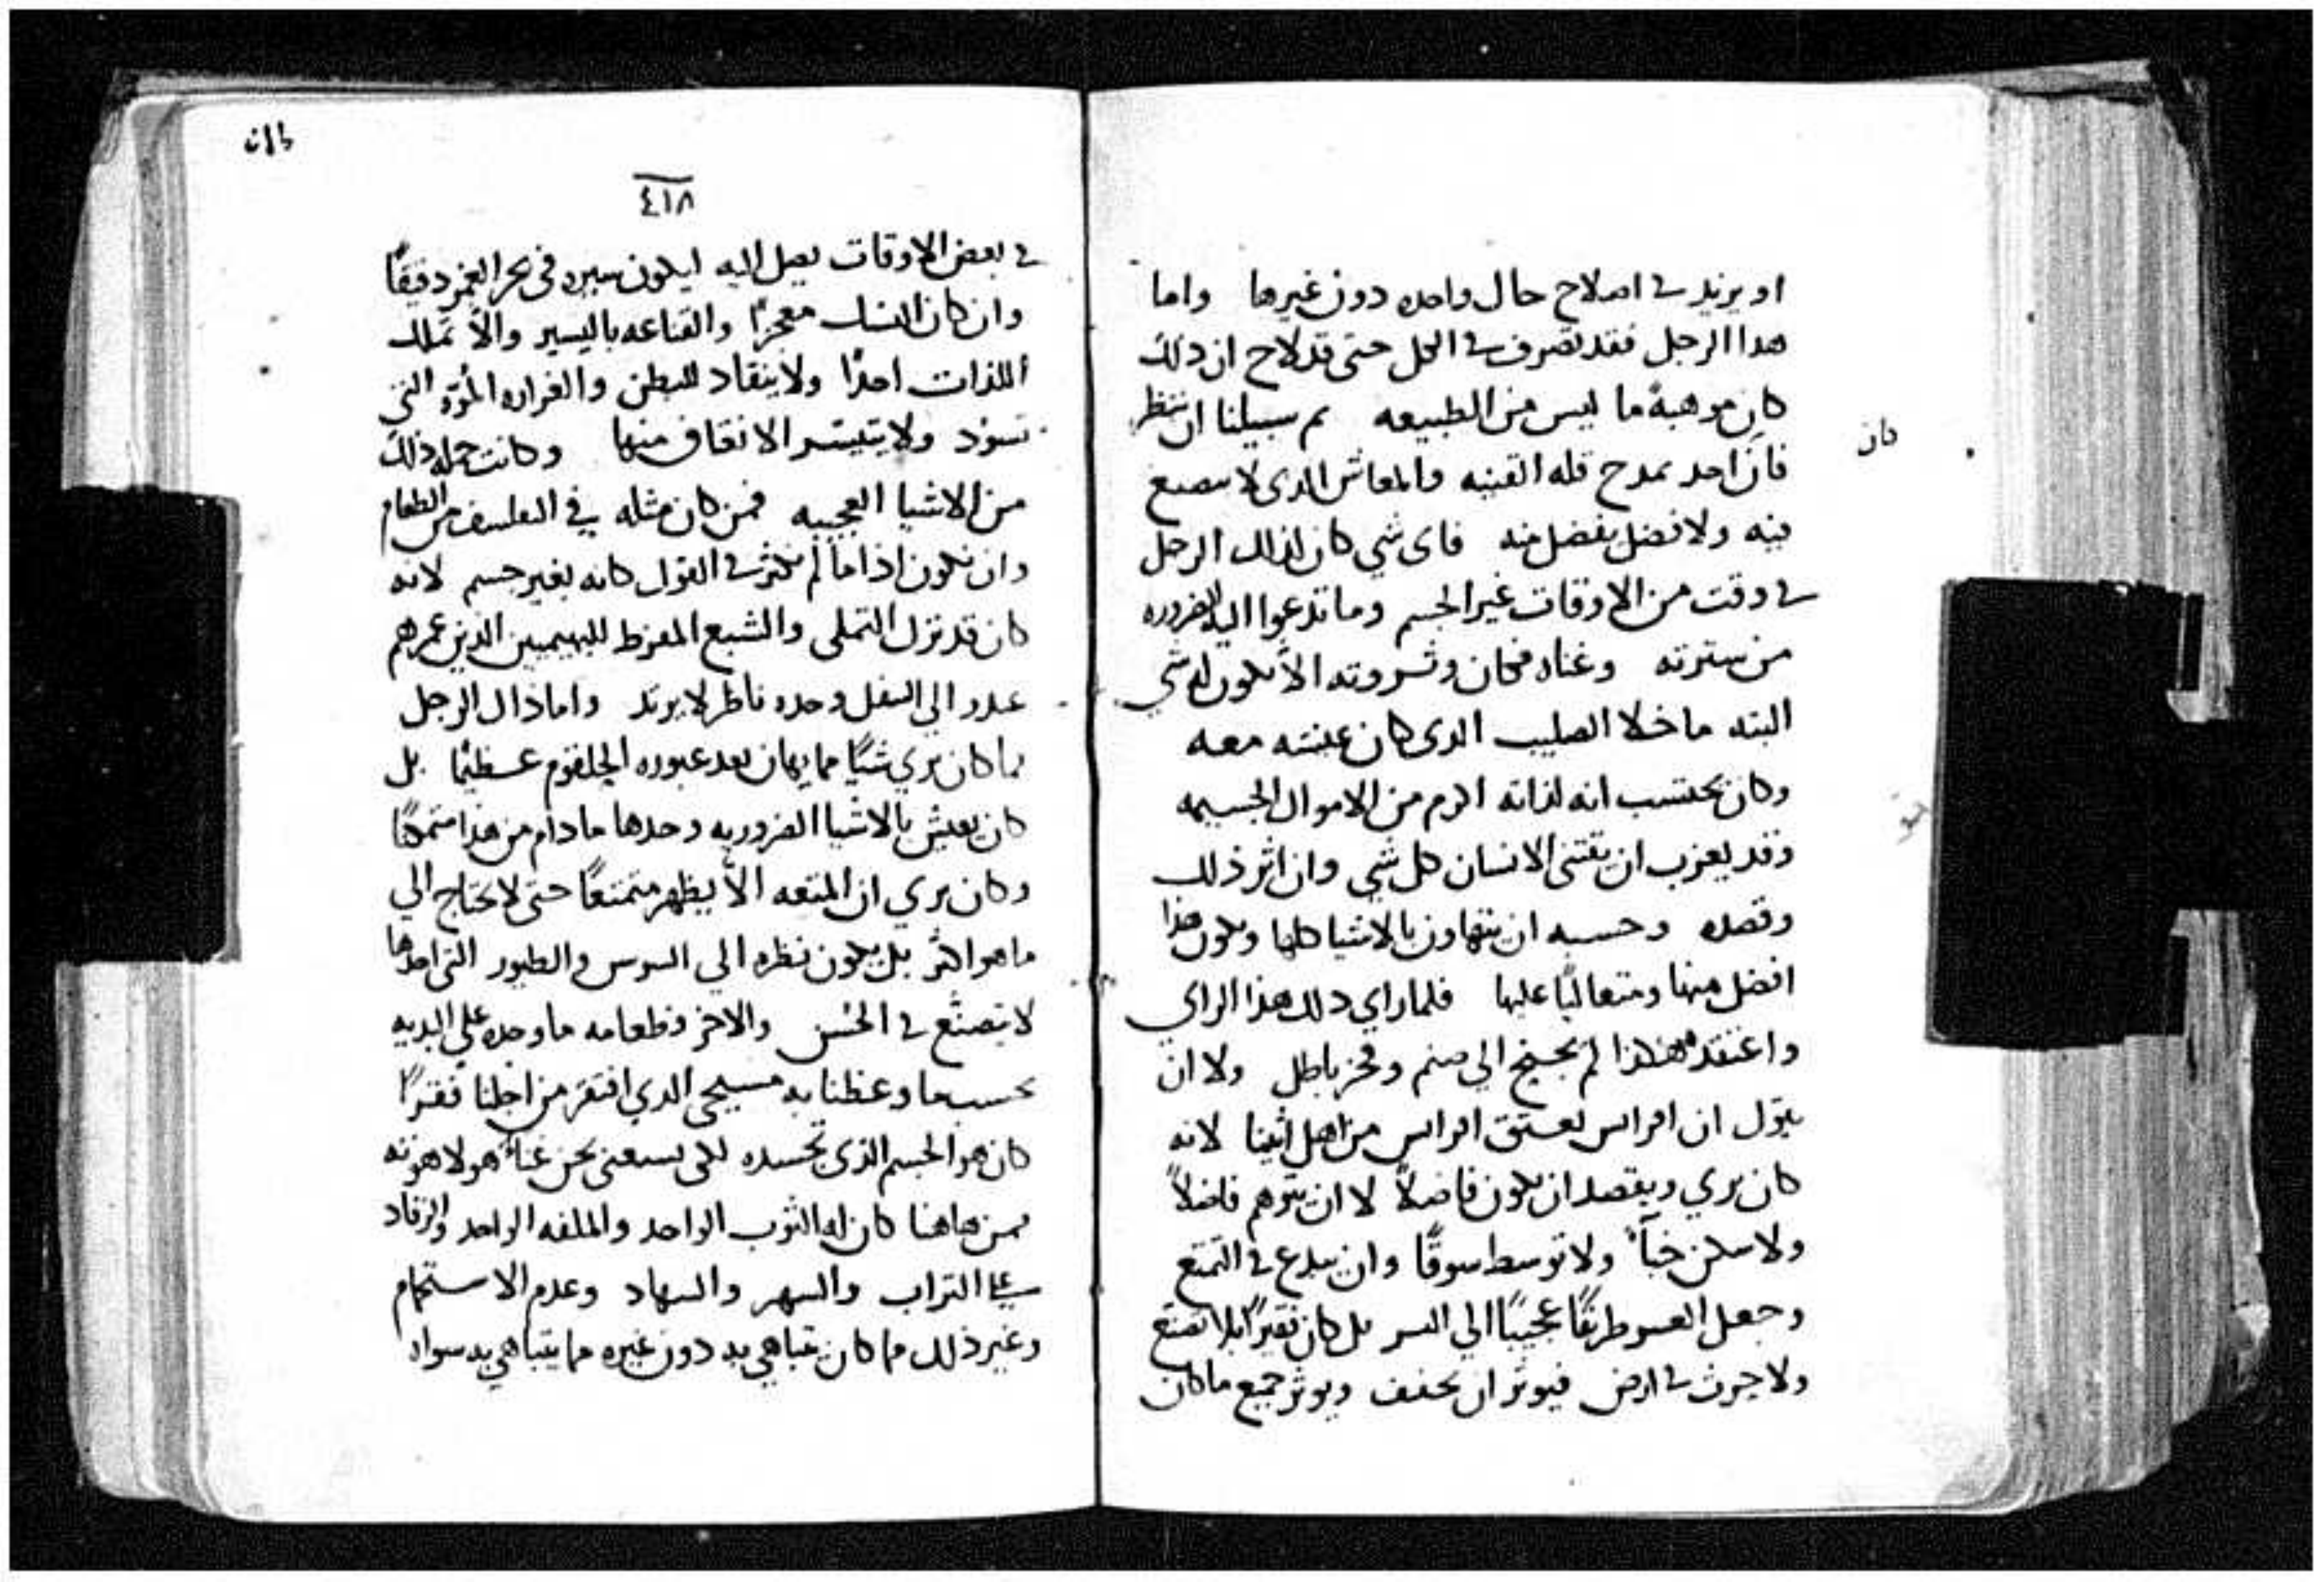 او يزيد في اصلاح حال واحده دون غيرها واما
هدا الرجل فقد تصرف في الكل حتى قد لاح ان ذلك
كان موهبةً ما ليس من الطبيعه ثم سبيلنا ان ننظر
فان احد يمدح قله القنيه والمعاش الدى لا تصنع
فيه ولا فضل يفضل منه فاى شي كان لذلك الرجل
في وقت من الاوقات غير الجسم وما تدعوا اليه الضروره
من سترته وغناه فكان وثروته الا يكون له شي
البته ما خلا الصليب الدى كان معه
وكان يحتسب انه لذاته اكرم من الاموال الجسيمه
وقد يعزب ان يقتنى الانسان كل شي وان اثر ذلك
وقصده وحسبه ان يتهاون بالاشيا كلها ويكون هذا
افضل منها ومتعاليًا عليها فلما راي ذلك هذا الراي
واعتقد هكذا لم يجنح الي صنم وفخر باطل ولا ان
يقول ان اقراطس يعتق اقراطس من اهل اثينا لانه
كان يري ويقصد ان يكون فاضلاً لا ان يتوهم فاضلاً
ولا سكن خبآء ولا توسط سوقًا وان يبدع في التمتع
وجعل العسر طريقًا عجيبًا الي اليسر بل كان فقيرًا بلا تصنع
ولا حرث في ارض فيوثر ان يخفف ويوثر جميع ما كان
كان
٤١٨
في بعض الاوقات يصل اليه ليكون سيره فى بحر العمر دقيقًا
وان كان النسك معجزًا والقناعه باليسير والا تملك
اللذات احدًا ولا ينقاد للبطن والضراره المؤه التي
تسود ولا يتيسر الانفاق منها وكانت جمله ذلك
من الاشيا العجيبه فمن كان مثله في من الطعام
وان يكون اذا ما لم نكثر في القول كانه بغير جسم لانه
كان قد نزل التملى والشبع المفرط للبهيميين الدين عمرهم
عدد الي السفل وحده ناظر لا يرتد واما ذاك الرجل
فما كان يري شيًا مما يهان بعد عبوره الحلقوم عظيمًا بل
كان يعيش بالاشيا الضروريه وحدها ما دام من هدا متمكنًا
وكان يري ان المتعه الا يظهر متمتعًا حتى لا يحتاج الي
ما هو اكثر بل يكون نظره الي السوس والطيور التي احدها
لا يتصنّع في الحُسن والاخر فطعامه ما وجده علي البديه
بحسب ما وعظنا به مسيحي الدي افتقر من اجلنا فقرًا
كان هو الجسم الذى تجسده لكي يستغني نحن غناءً هو لاهوته
فمن هاهنا كان له الثوب الواحد والملفه الواحد والرقاد
علي التراب والسهر والسهاد وعدم الاستحمام
وغير ذلك مما كان يتباهي به دون غيره مما يتباهي به سواه